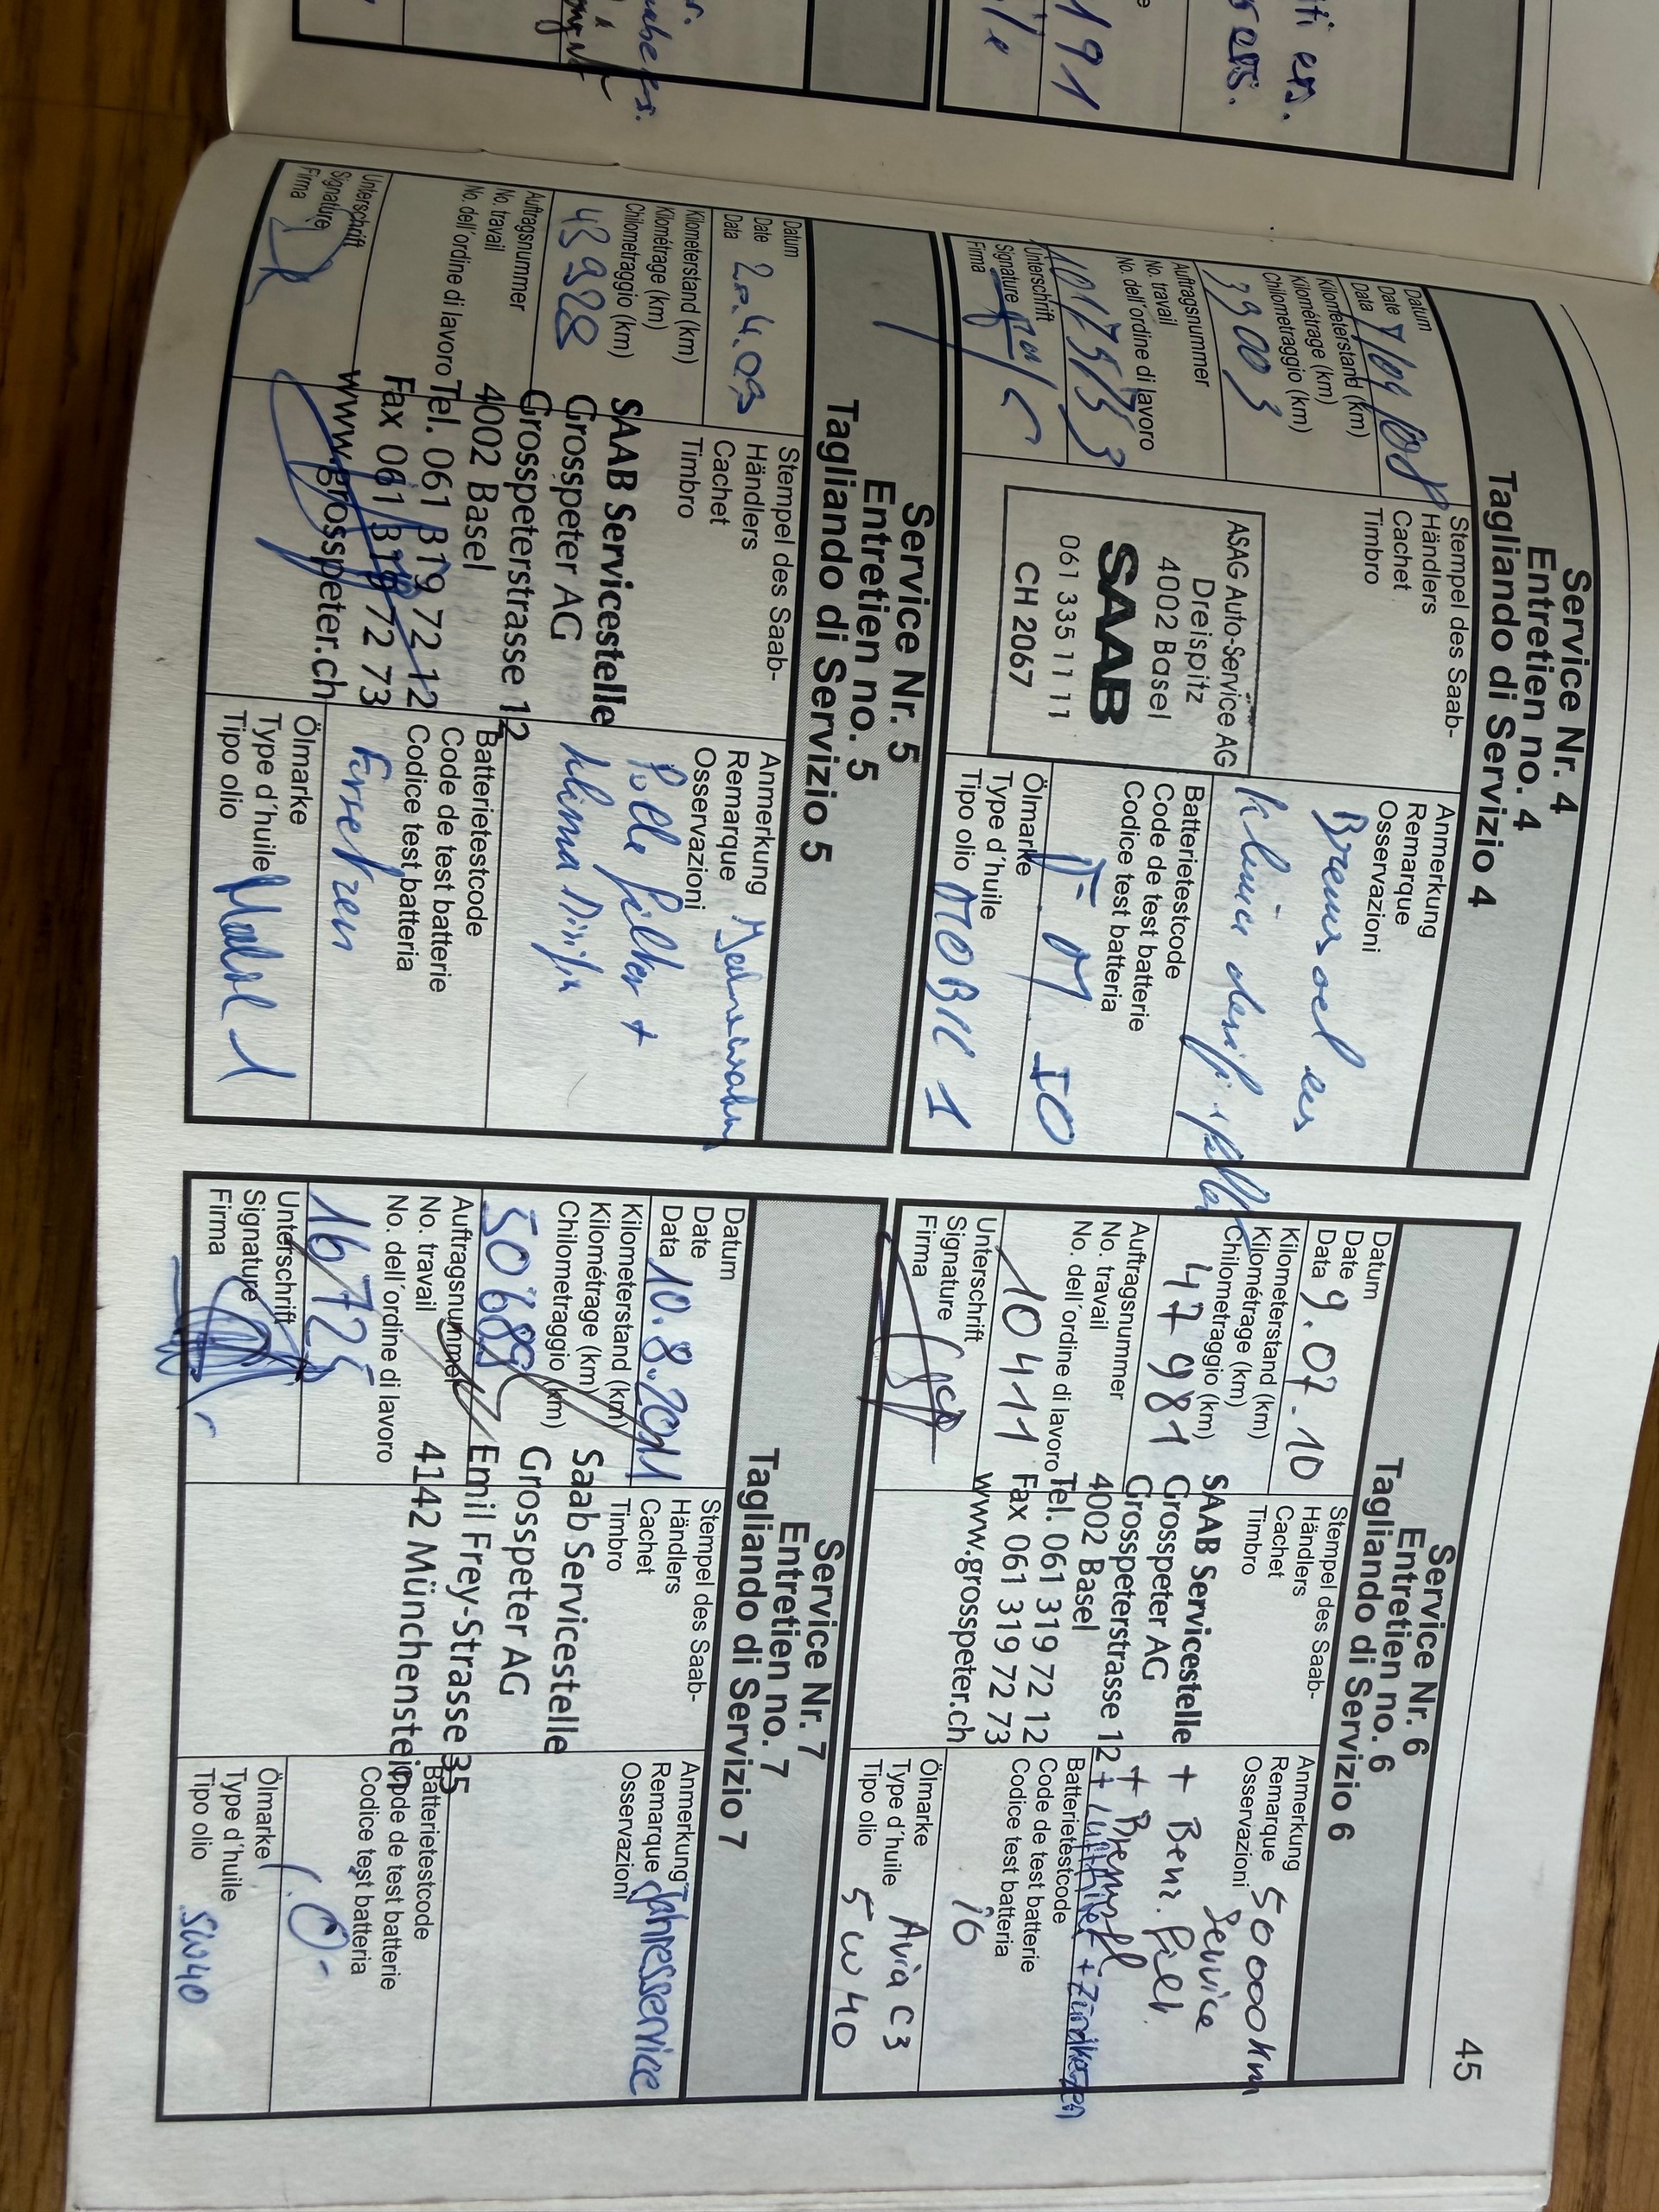 45
Service Nr. 4
Entretien no. 4
Tagliando di Servizio 4
Datum
Date
Data
Kilometerstand (km)
Kilométrage (km)
Chilometraggio (km)
39003
Auftragsnummer
No. travail
No. dell'ordine di lavoro
Unterschrift
Signature
Firma
Stempel des Saab-
Händlers
Cachet
Timbro
ASAG Auto-Service AG
Dreispitz
4002 Basel
SAAB
061 335 11 11
CH 2067
Anmerkung
Remarque
Osservazioni
Bremsoel ers
Klima desif.
Batterietestcode
Code de test batterie
Codice test batteria
IO
Ölmarke
Type d'huile
Tipo olio MOBIL 1
Service Nr. 5
Entretien no. 5
Tagliando di Servizio 5
Datum
Date 2.4.09
Data
Kilometerstand (km)
Kilométrage (km)
Chilometraggio (km)
43928
Auftragsnummer
No. travail
No. dell'ordine di lavoro
Unterschrift
Signature
Firma
Stempel des Saab-
Händlers
Cachet
Timbro
SAAB Servicestelle
Grosspeter AG
Grosspeterstrasse 12
4002 Basel
Tel. 061 319 72 12
Fax 061 319 72 73
www.grosspeter.ch
Anmerkung
Remarque
Osservazioni
Polle filter +
Klima
Batterietestcode
Code de test batterie
Codice test batteria
ersetzen
Ölmarke
Type d'huile
Tipo olio Mobil 1
Service Nr. 6
Entretien no. 6
Tagliando di Servizio 6
Datum
Date
Data 9.07.10
Kilometerstand (km)
Kilométrage (km)
Chilometraggio (km)
47981
Auftragsnummer
No. travail
No. dell'ordine di lavoro
10411
Unterschrift
Signature
Firma
Stempel des Saab-
Händlers
Cachet
Timbro
SAAB Servicestelle
Grosspeter AG
Grosspeterstrasse 12
4002 Basel
Tel. 061 319 72 12
Fax 061 319 72 73
www.grosspeter.ch
Anmerkung
Remarque 50000km
Osservazioni Service
+ Benz. Filt.
+ Bremsfl
+ Luftfilter + Zündkerzen
Batterietestcode
Code de test batterie
Codice test batteria
io
Ölmarke
Type d'huile Avia C3
Tipo olio 5w40
Service Nr. 7
Entretien no. 7
Tagliando di Servizio 7
Datum
Date
Data 10.8.2011
Kilometerstand (km)
Kilométrage (km)
Chilometraggio (km)
50'689
Auftragsnummer
No. travail
No. dell'ordine di lavoro
Unterschrift
Signature
Firma
Stempel des Saab-
Händlers
Cachet
Timbro
Saab Servicestelle
Grosspeter AG
Emil Frey-Strasse 35
4142 Münchenstein
Anmerkung
Remarque Jahresservice
Osservazioni
Batterietestcode
Code de test batterie
Codice test batteria
i.O.
Ölmarke
Type d'huile
Tipo olio 5W40